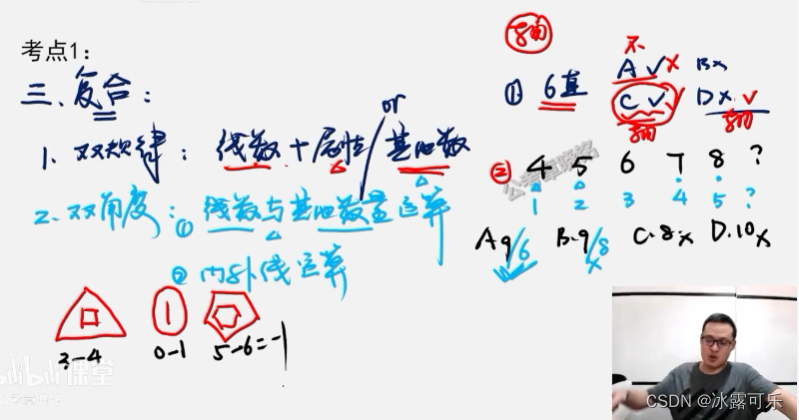 考点1：
三、复合：
or
1. 双规律：线数+属性/其他数
2. 双角度：① 线数与其他数量运算
② 内外线运算
3-4 0-1 5-6=-1
轴
① 6直
不
A✓× B×
C✓✓ D×✓
轴 轴
② 4 5 6 7 8 ?
1 2 3 4 5 ?
A.9/6 B.9/8× C.8× D.10×
bilibili课堂
CSDN @冰露可乐